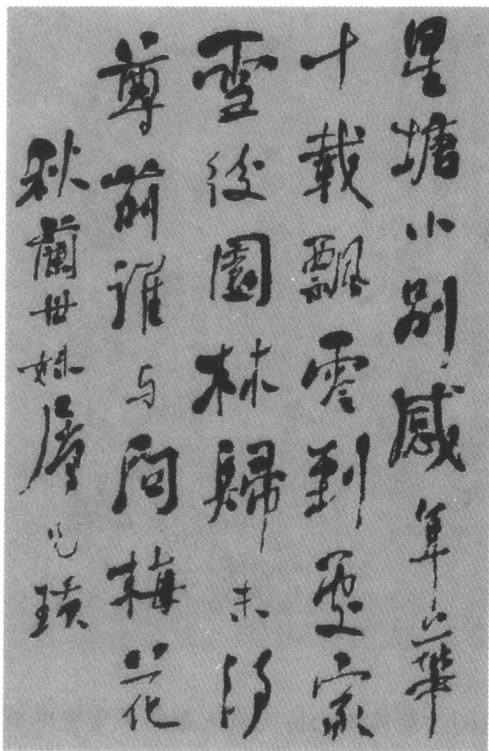 星塘小別感年華
十載飄零到處家
雪後園林歸未得
尊前誰与問梅花
秋蘭世妹屬兄璜